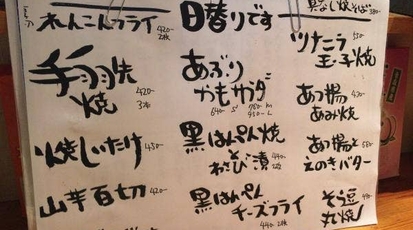 れんこんフライ 420-
2枚
手羽先
焼 420-
3本
焼しいたけ 450-
山芋百切 420-
日替りです
あぶり
かもサラダ
640- S 750- M 950- L
黒はんぺん焼
わさび漬 440-
黒はんぺん
チーズフライ
440- 2枚
具なし焼そば 380-
ツナニラ
玉子焼 550-
あつ揚
あみ焼 420-
あつ揚と
えのきバター 580-
そら豆
丸焼